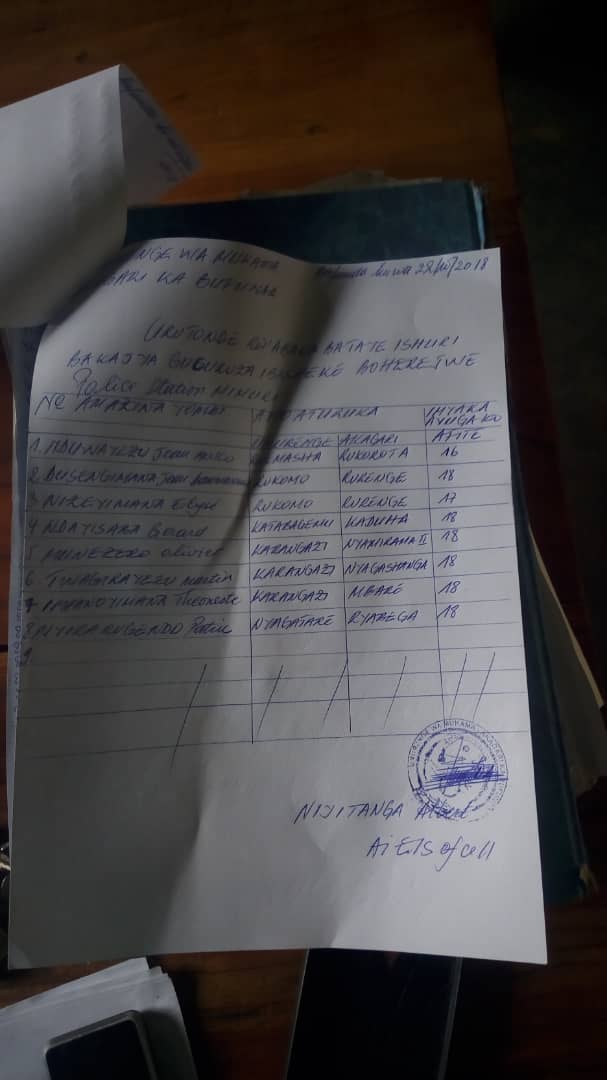 NGE WA MUKAMA
GARI KA GUFUNAR
28/ 2018
URUTONDE RW'ABANA BATATE ISHURI
BAKAJYA GUGURUZA IBISHEKE BOHEREJWE
Police Station MIMURI
No AMAZINA YOMBI AHO ATURUKA IMYAKA
UMURENGE AKAGARI AFITE
1. NDUWAYEZU Jean RUKOROTA 16
2 DUSENGIMANA Jean RUKOMO RURENGE 18
3 NIZEYIMANA RUKOMO RURENGE 17
4 NDAYISABA Gerard KATABAGEMU KADUHA 18
5 MUNEZERO olivier KARANGAZI NYAMIRAMA II 18
6 TWAGIRAYEZU martin KARANGAZI NYAGASHANGA 18
7 IMANOYIMANA Theoneste KARANGAZI MBARE 18
8 NYIRARUGENDO NYAGATARE RYABEGA 18
9
NIJITANGA Albert
Ai E/S of cell